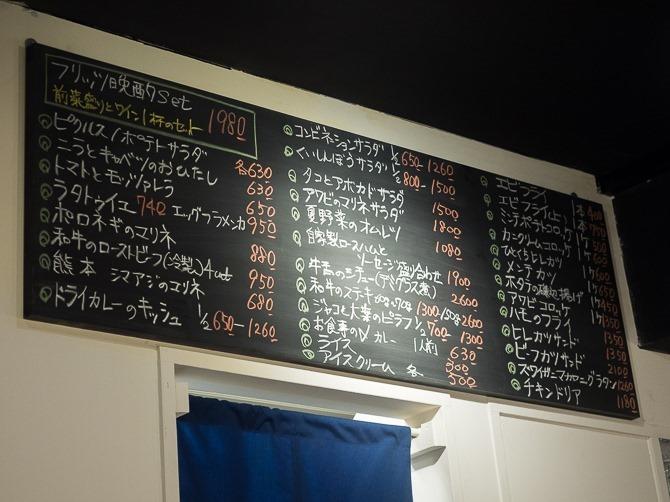 フリッツ晩酌Set
前菜盛りとワイン1杯のセット 1980
ピクルス/ポテトサラダ 各630
ニラとキャベツのおひたし 630
トマトとモッツァレラ 650
ラタトゥイユ 740 エッグフラメンカ 950
ポロネギのマリネ 880
和牛のローストビーフ(冷製)4cut 950
熊本 シマアジのマリネ 680
ドライカレーのキッシュ 1/2 650-1260
コンビネーションサラダ 1/2 650-1260
くいしんぼうサラダ 1/2 800-1500
タコとアボカドサラダ 1500
アワビのマリネサラダ 1800
夏野菜のオムレツ 1080
自家製ロースハムと
ソーセージ盛り合わせ 1900
牛舌のシチュー(デミグラス煮) 2600
和牛のステーキ 1300/150g 2600
ジャコと大葉のピラフ 1/2 700-1300
お食事のカレー 1人前 630
ライス 300
アイスクリーム 各500
エビフライ 1本
エビフライ(上) 1本
ミニポテトコロッケ 1ケ
カニクリームコロッケ 1ケ 600
ひとくちヒレカツ 1ケ
メンチカツ 1ケ 650
ホタテの磯辺揚げ 1ケ
アワビコロッケ 1ケ
ハモのフライ 1350
ヒレカツサンド 1350
ビーフカツサンド 2100
ズワイガニマカロニグラタン 1260
チキンドリア 1180